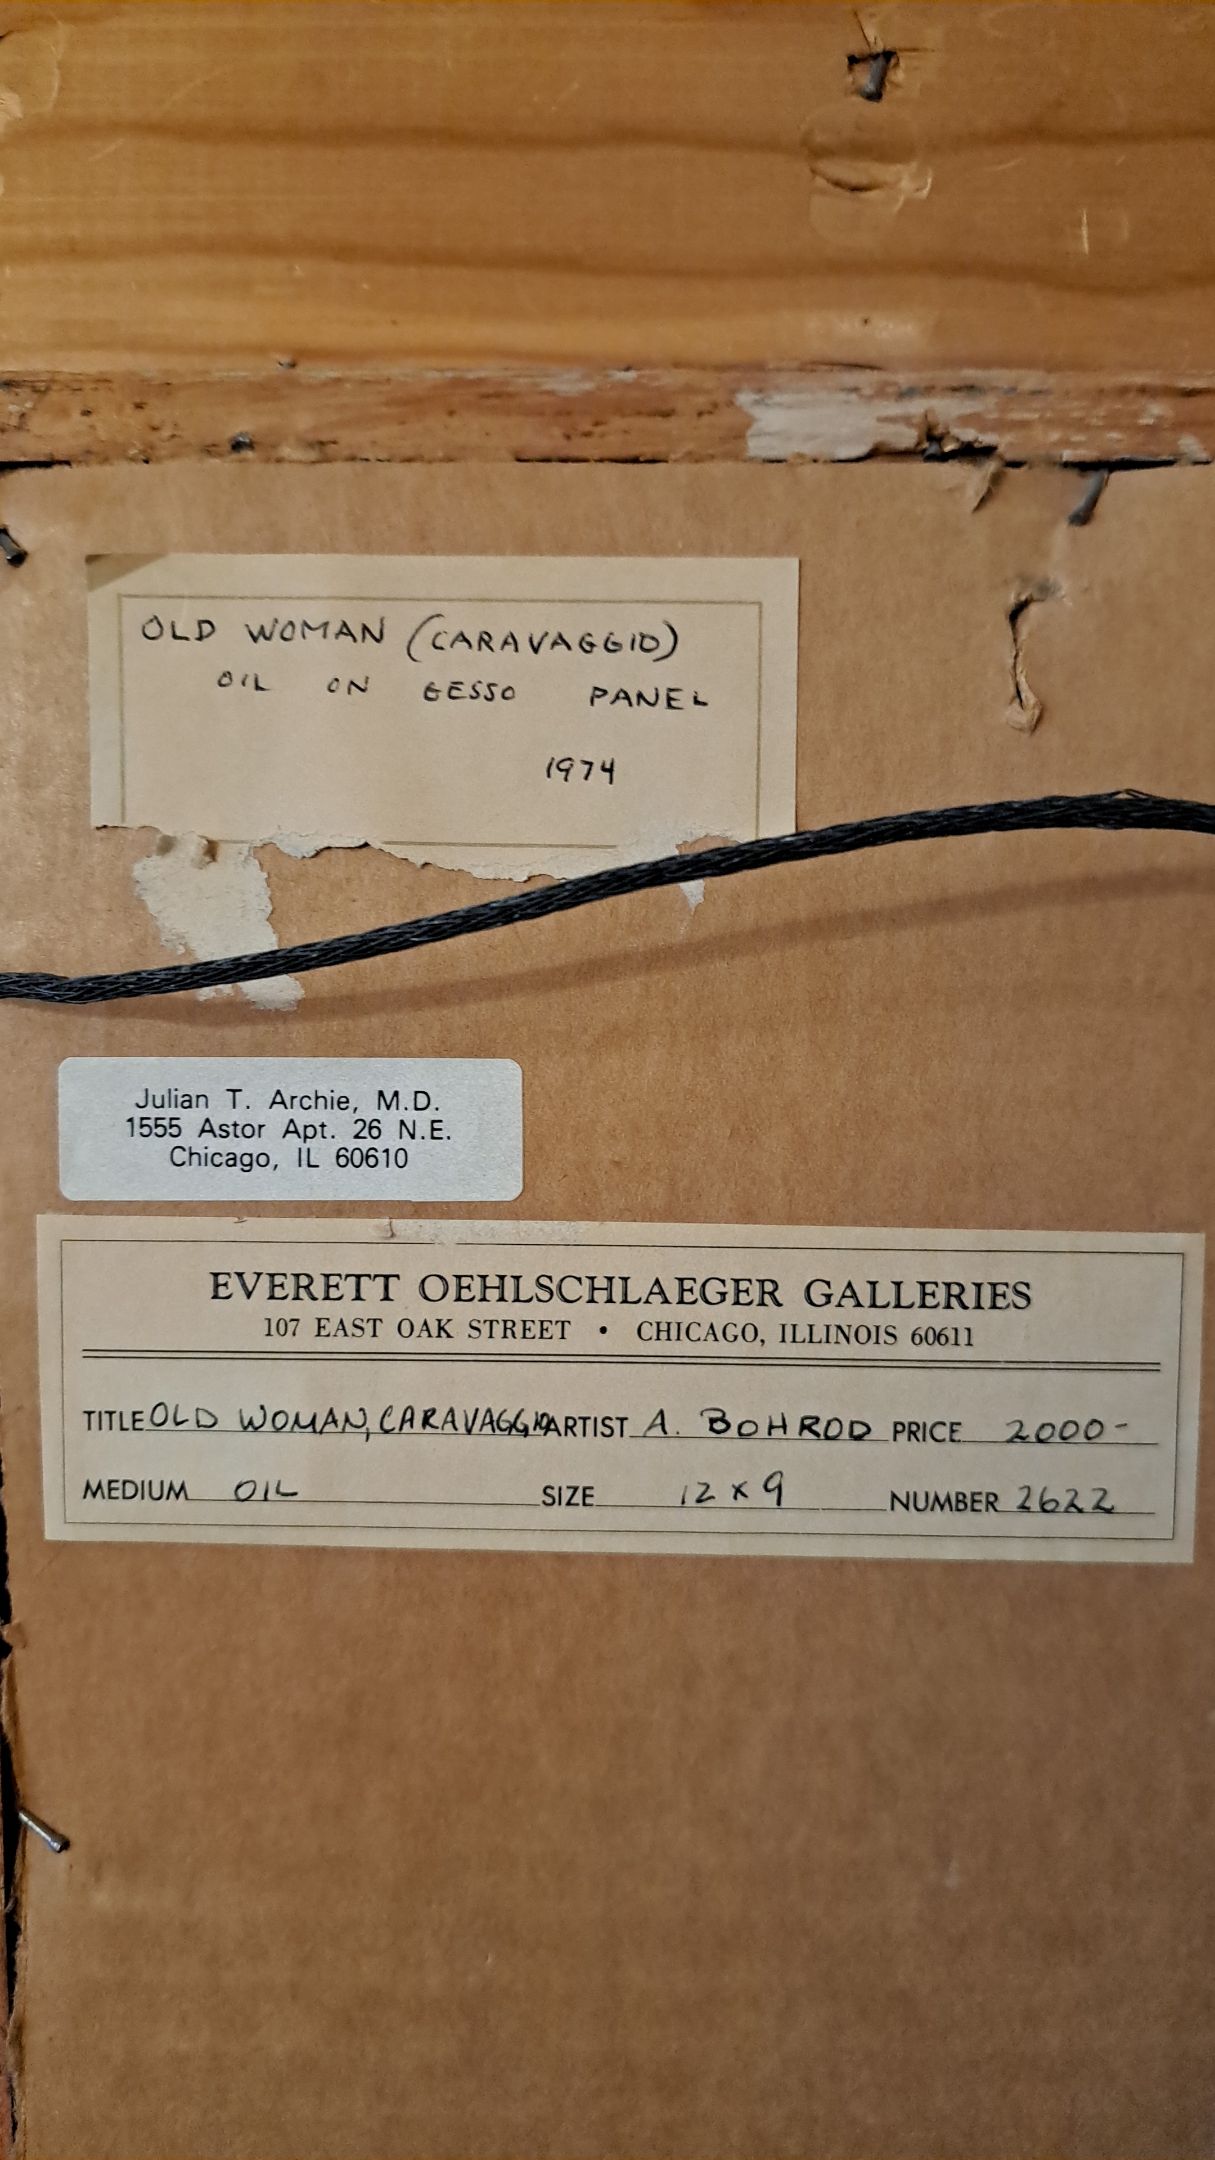 OLD WOMAN (CARAVAGGIO)
OIL ON GESSO PANEL
1974
Julian T. Archie, M.D.
1555 Astor Apt. 26 N.E.
Chicago, IL 60610
EVERETT OEHLSCHLAEGER GALLERIES
107 EAST OAK STREET • CHICAGO, ILLINOIS 60611
TITLE OLD WOMAN, CARAVAGGIO ARTIST A. BOHROD PRICE 2000-
MEDIUM OIL SIZE 12 x 9 NUMBER 2622